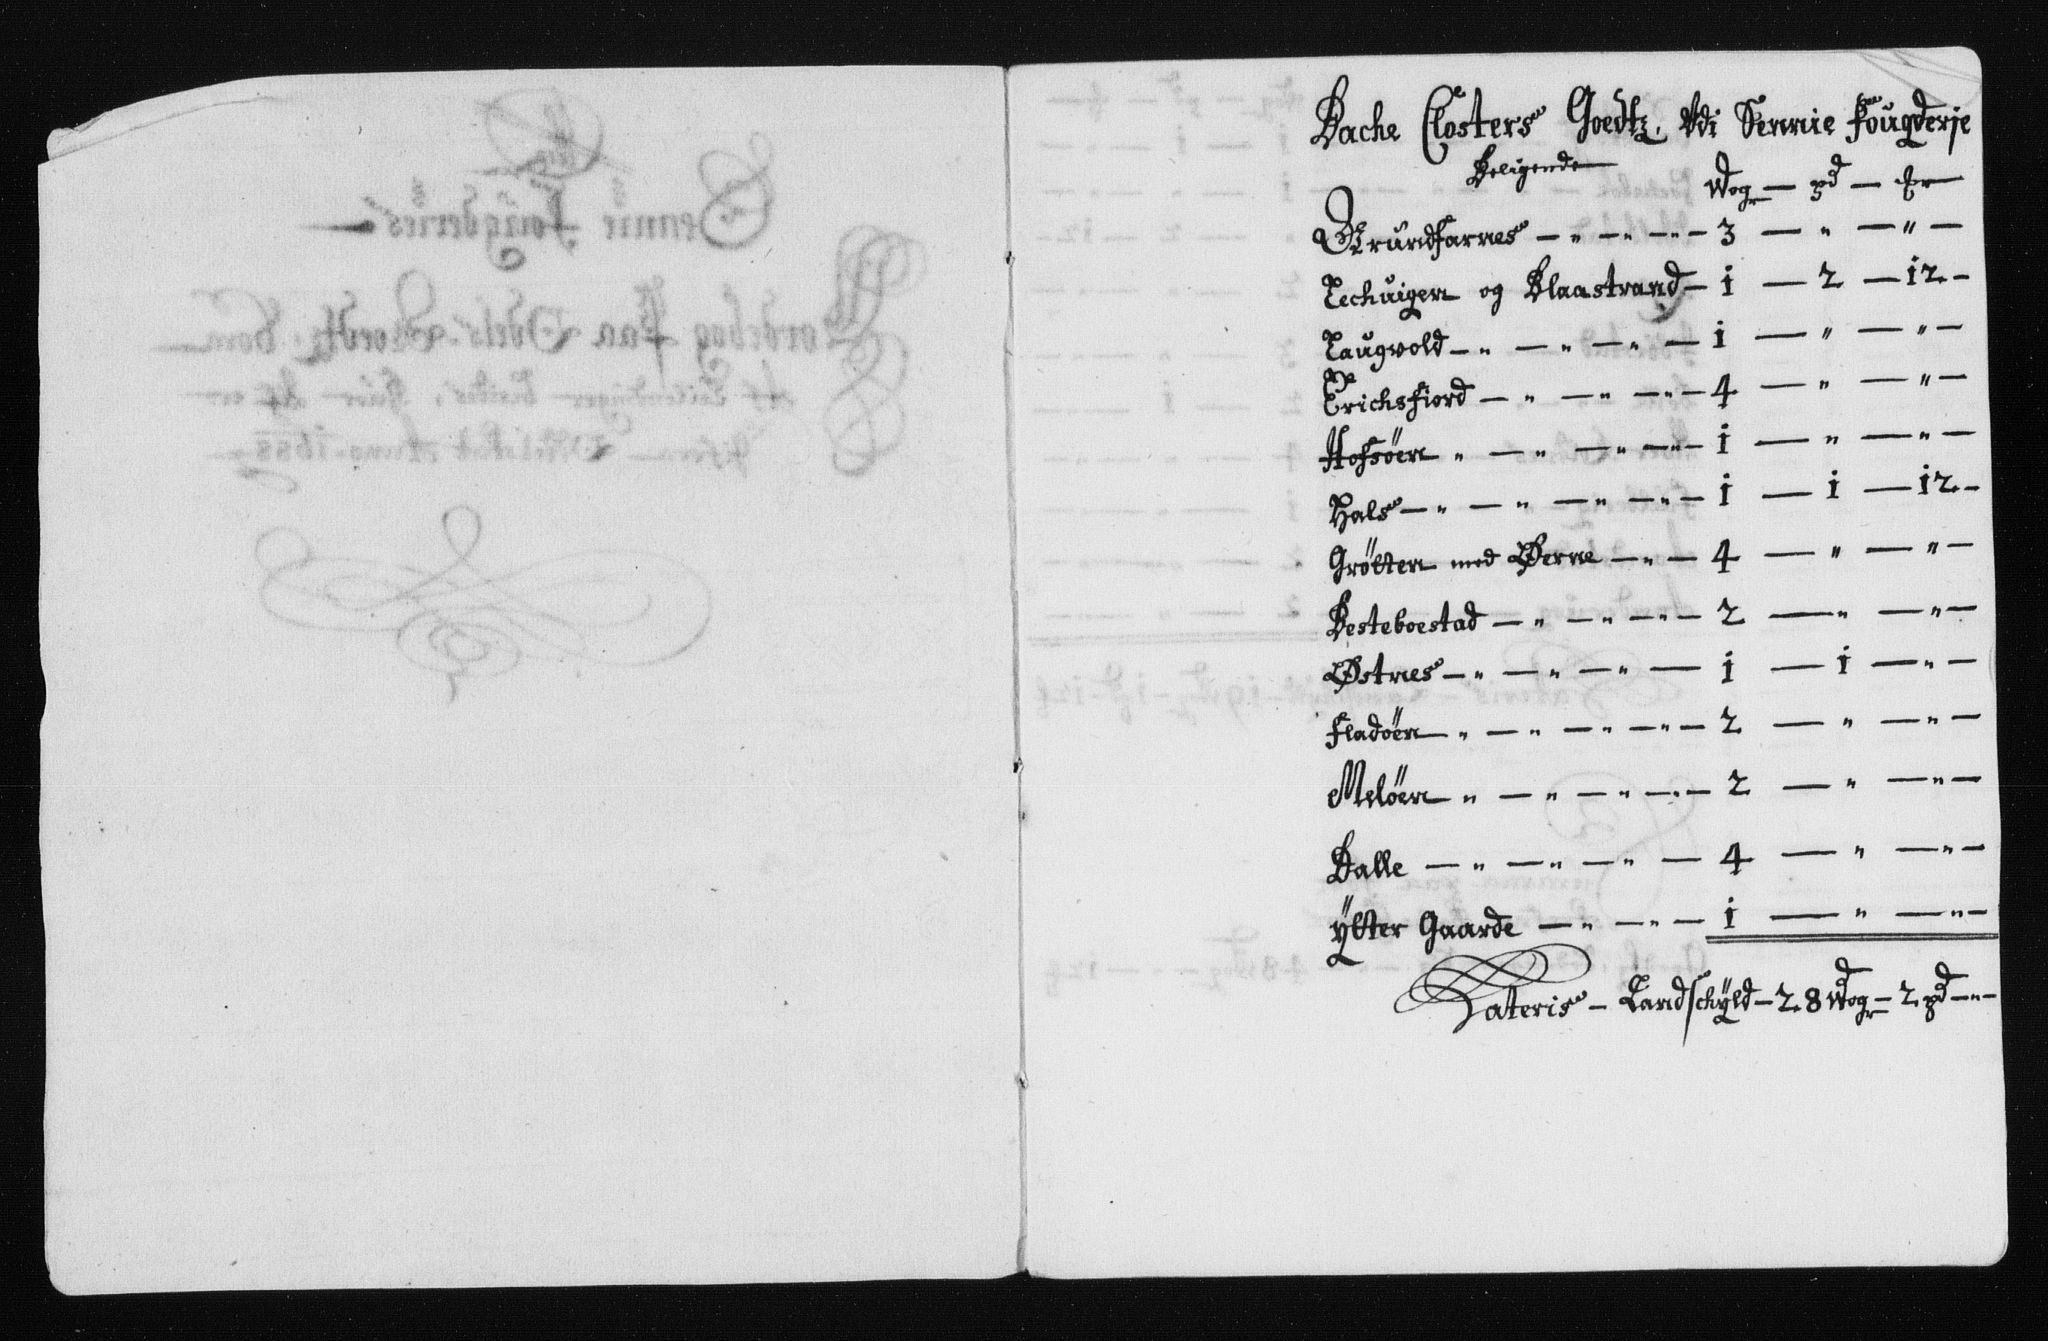 Bache Closters Goedtz. Udi Sennie fougderje
Beligende
Wog — pd — ℔r
Grundfarnes — „ — „ — „ — 3 — „ — „ —
Lechuigen og Blaastrand — i — 2 — i2 —
Laugvold — „ — „ — „ — i — „ — „ —
Erichsfiord — „ — „ — „ — 4 — „ — „ —
Hofsöen „ — „ — „ — „ — i — „ — „ —
Hals — „ — „ — „ — „ — i — i — i2 —
Grötten med Øerne — „ — 4 — „ — „ —
Besteboestad — „ — „ — „ — 2 — „ — „ —
Østnes — „ — „ — „ — i — i — „ —
fladöen „ — „ — „ — „ — 2 — „ — „ —
Melöen „ — „ — „ — „ — 2 — „ — „ —
Balle — „ — „ — „ — 4 — „ — „ —
ÿtter Gaarde — „ — „ — i — „ — „ —
Lateris — Landschÿld — 28 Wog — 2 pd — „ —